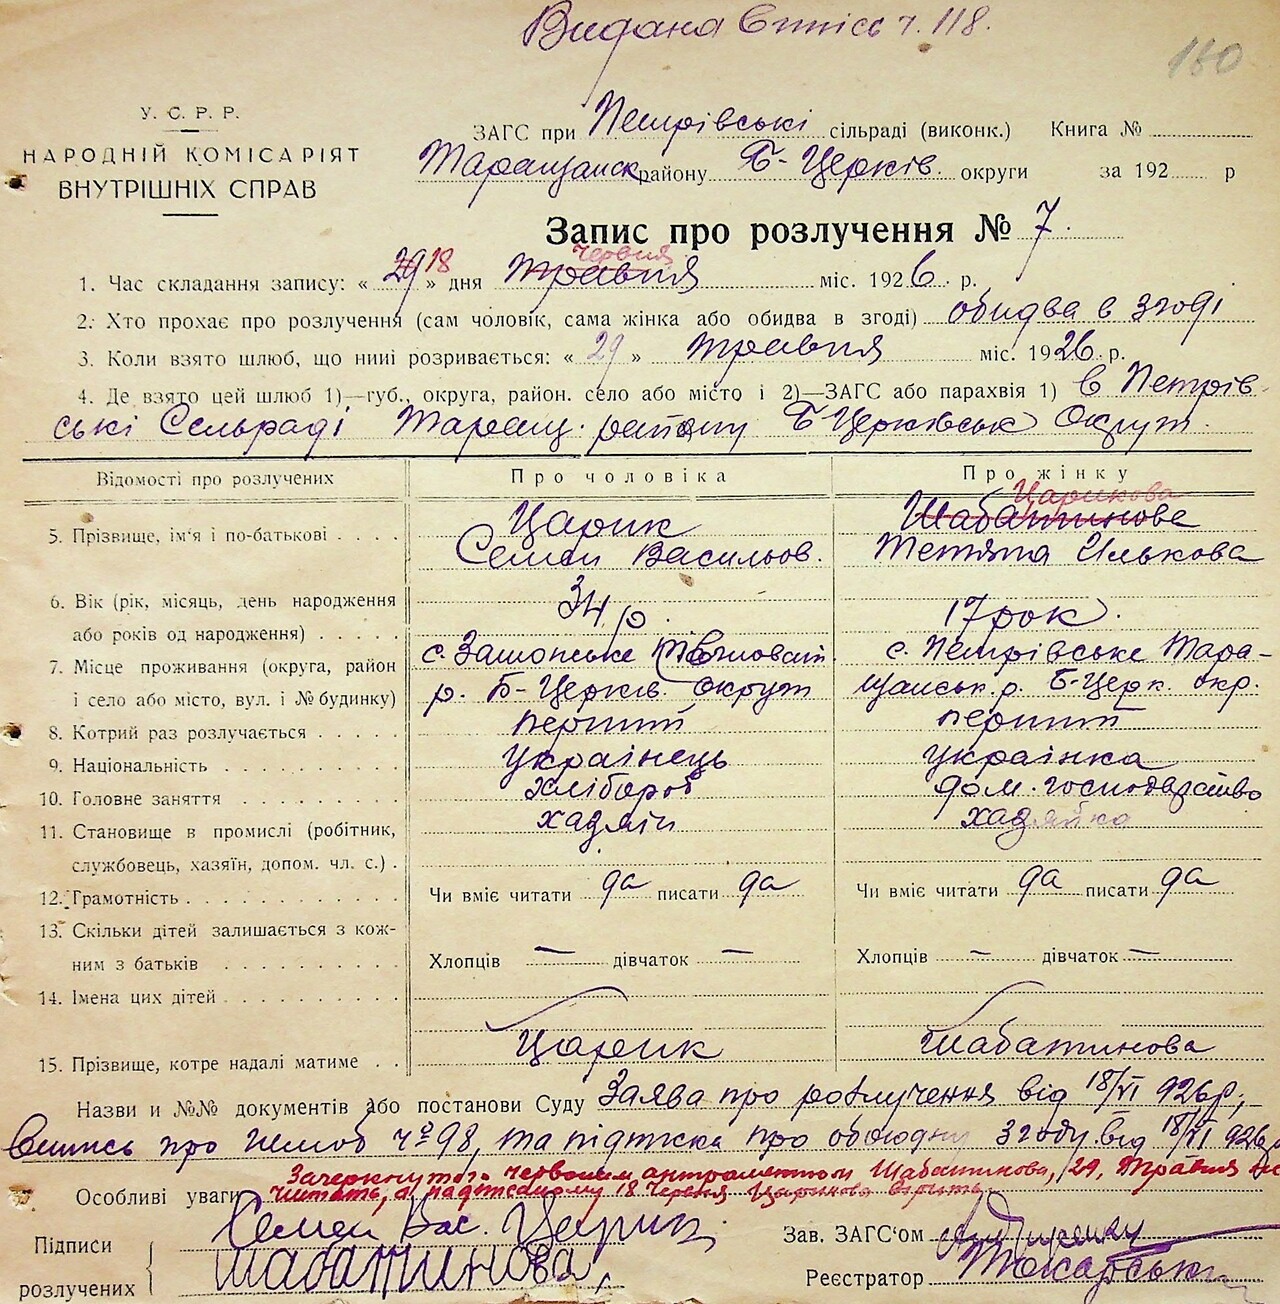 Видана Впись ч. 118.
160
У. С. Р. Р.
НАРОДНІЙ КОМІСАРІЯТ
ВНУТРІШНІХ СПРАВ
ЗАГС при Петрівські сільраді (виконк.) Книга №
Таращанск району Б-Церків. округи за 192 р
Запис про розлучення № 7.
червня
1. Час складання запису: « 29 18 » дня травня міс. 1926 р.
2. Хто прохає про розлучення (сам чоловік, сама жінка або обидва в згоді) обидва в згоді
3. Коли взято шлюб, що нині розривається: « 29 » травня міс. 1926. р.
4. Де взято цей шлюб 1)—губ., округа, район. село або місто і 2)—ЗАГС або парахвія 1) в Петрів-
ські Сельраді Таращ. району Б-Церківськ Округ.
Відомості про розлучених Про чоловіка Про жінку
Царикова
5. Прізвище, ім'я і по-батькові Царик Шабатинова
Семен Васильов. Тетяна Илькова
6. Вік (рік, місяць, день народження
або років од народження) 34 р. 17 рок.
7. Місце проживання (округа, район с. с. Петрівське Тара-
і село або місто, вул. і № будинку) р. Б-Церків. округи щанськ. р. Б-Церк. окр.
8. Котрий раз розлучається перший перший
9. Національність українець українка
10. Головне заняття хлібороб дом. господарство
11. Становище в промислі (робітник, хазяїн хазяйка
службовець, хазяїн, допом. чл. с.)
12. Грамотність Чи вміє читати да писати да Чи вміє читати да писати да
13. Скільки дітей залишається з кож-
ним з батьків Хлопців — дівчаток — Хлопців — дівчаток —
14. Імена цих дітей
15. Прізвище, котре надалі матиме Царик Шабатинова
Назви и №№ документів або постанови Суду Заява про розлучення від 18/VI 926 р.,
Впись про шлюб ч. 98, та підписка про обоюдну згоду від 18/VI 926 р
Зачеркнутого червоним антраментом Шабатинова, 29, Травня не
Особливі уваги читать, а надписаному 18 Червня Царикова вірить.
Підписи
розлучених
Семен Вас. Царик
Шабатинова
Зав. ЗАГС'ом
Реєстратор